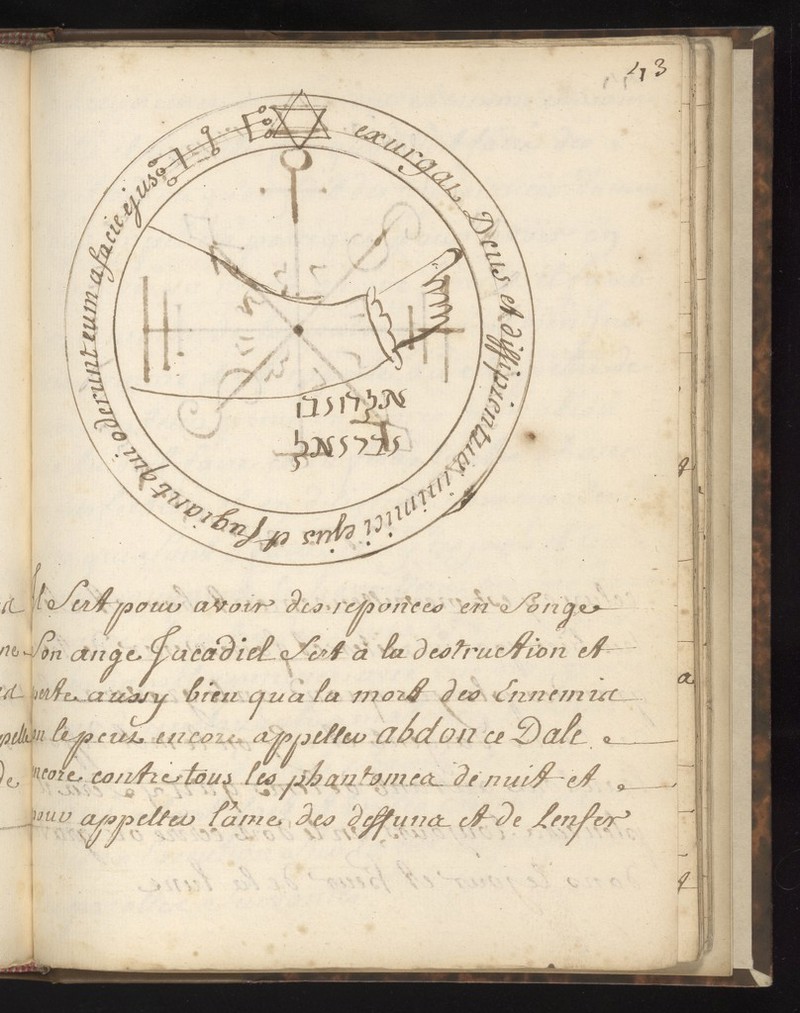 43
exurgat Deus et dissipientur inimici ejus et fugiant qui oderunt eum a facie ejus
Il Sert pour avoir des reponces en Songe
Son ange Jacadiel Sert a la destruction et
perte aussy bien qua la mort des Ennemis
on le peut encore appeller abdon ce Dale
encore contre tous les phantomes de nuit et
pour appeller l'ame des deffuns et de Lenfer